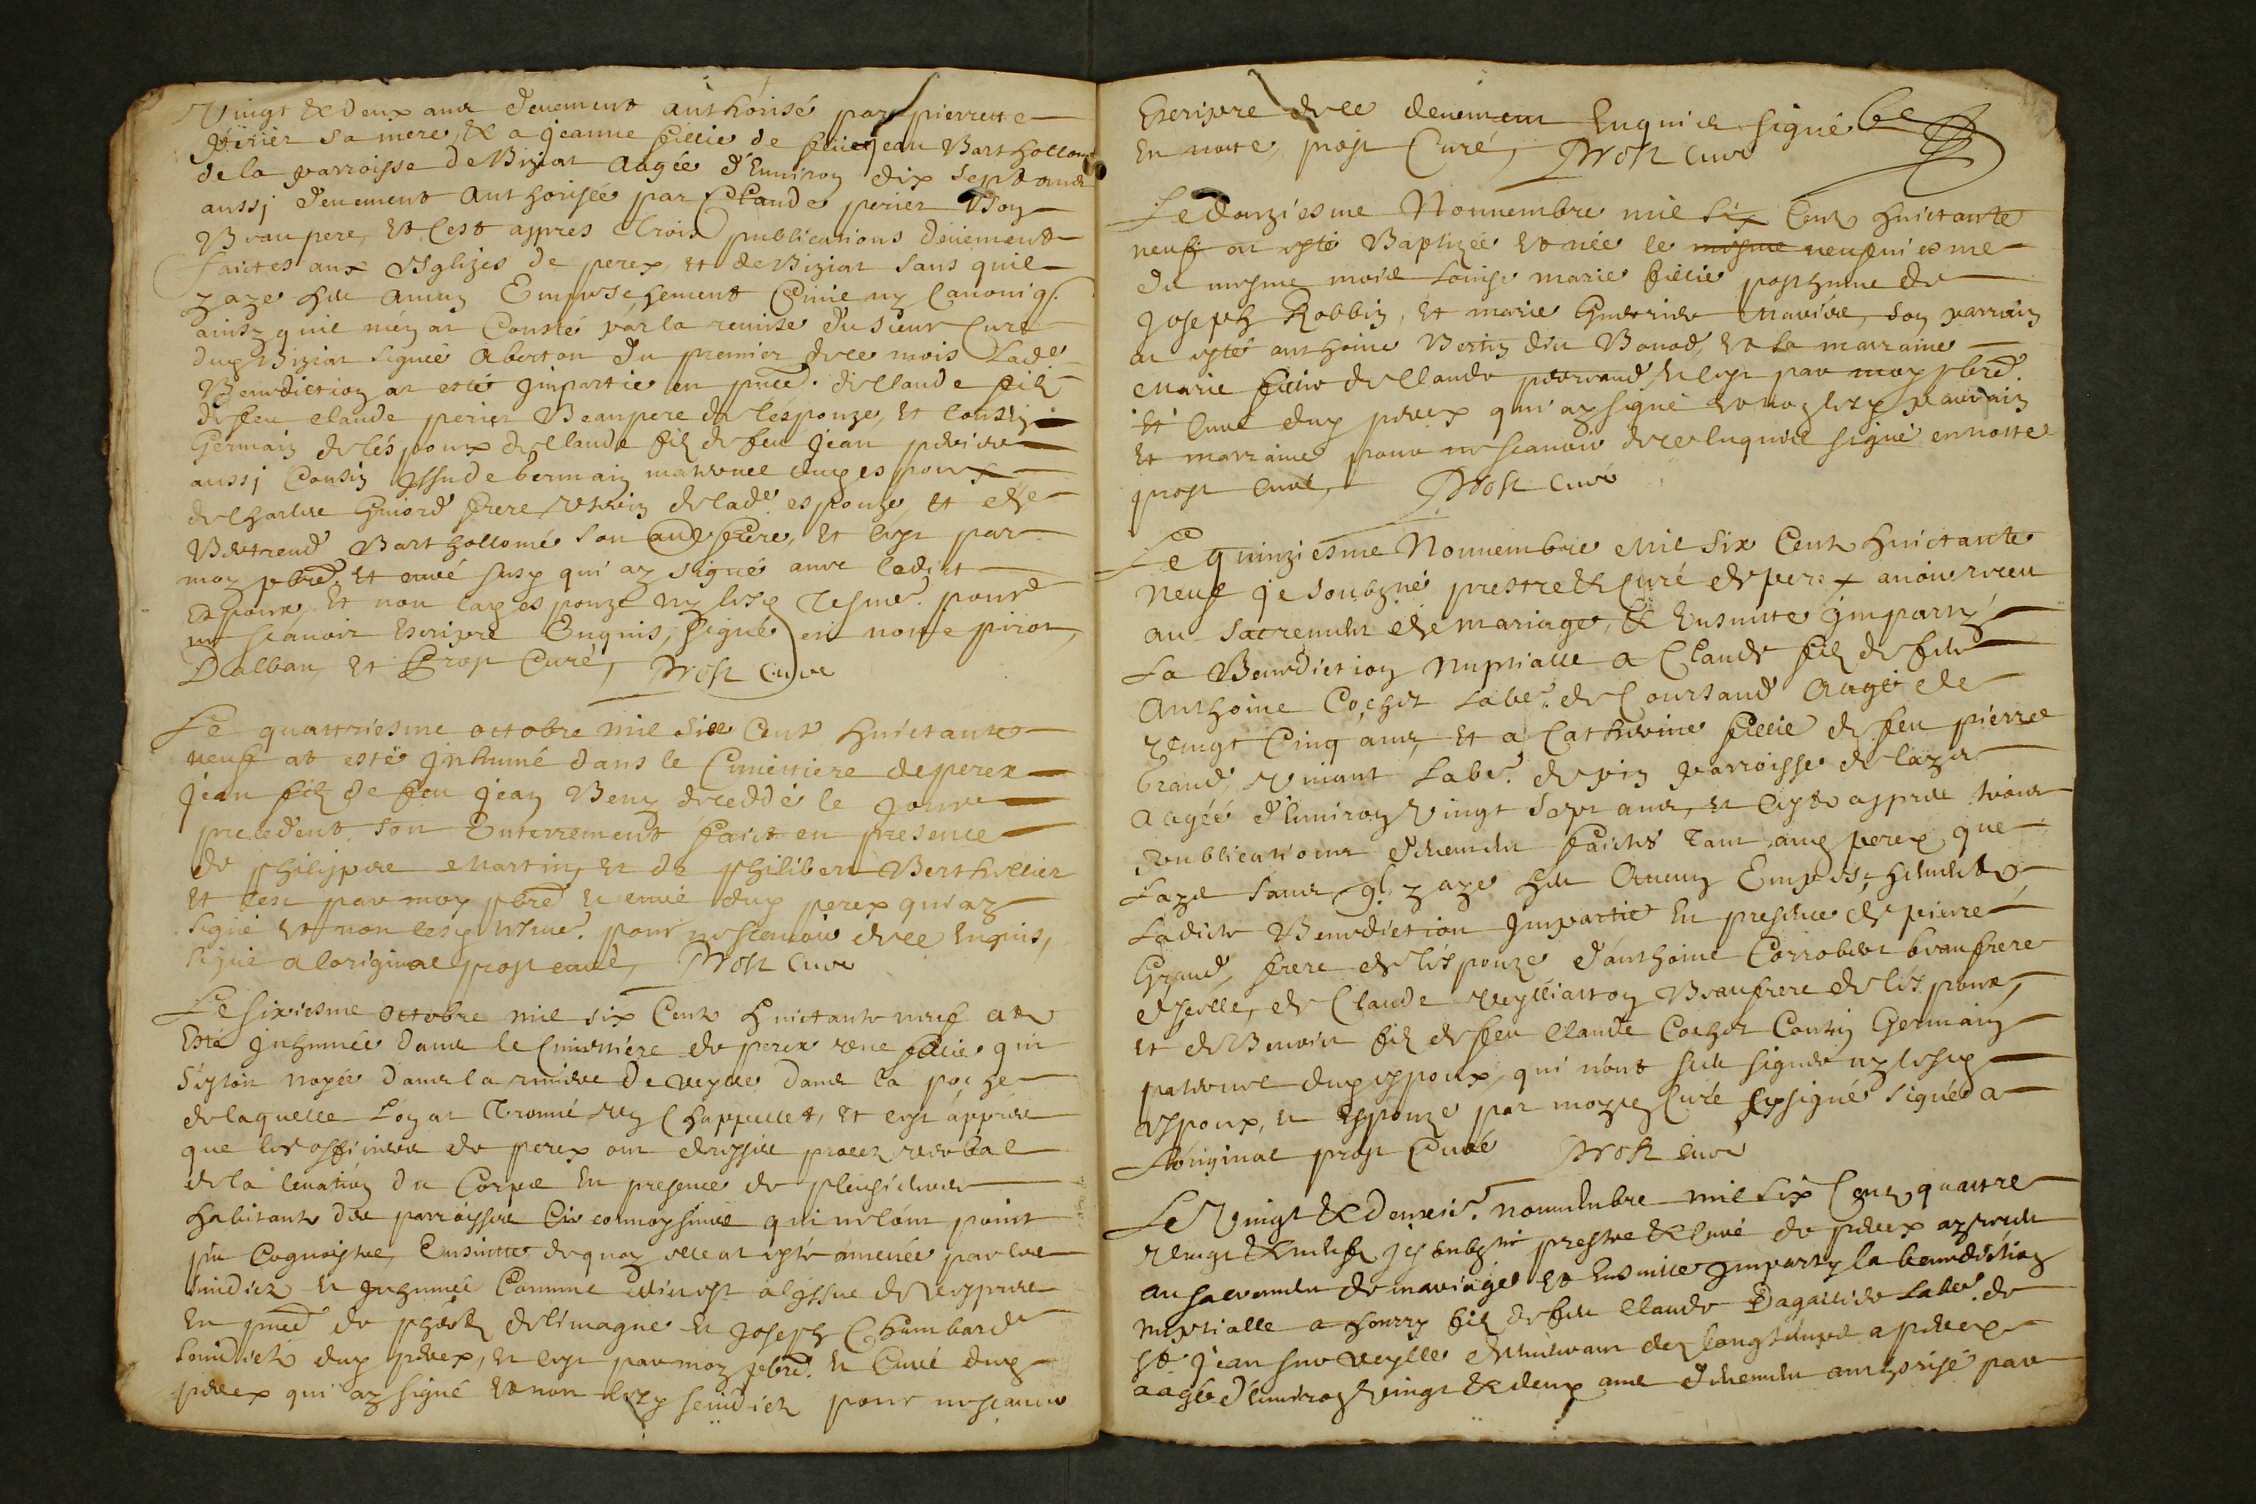 Vingt & deux ans deuement authorisé par pierrette
perier sa mere, & a jeanne fillie de feu jean Barthollome
de la parroisse de Biziat aagée d'Enuiron dix sept ans
aussj deuement authorisée par Claude perier son
Beaupere, et c'est apres trois publications deuement
faictes aux Esglizes de perex, et de Biziat sans quil
y aye heu aucun Empeschement Ciuil ny Canoniq.
ainsy quil m'en at Consté par la remise du sieur Curé
dud Biziat signée du premier de ce mois Lade
Benediction at esté Impartie en pnce. de Claude filz
de feu claude perier Beaupere de l'espouze, et Cousin
Germain de l'espoux de Claude filz de feu jean perier
aussj Cousin Issu de Germain maternel dud espoux
de Charles frere vterin de lade. espouze, et de
Bertrand Barthollomé son aud frere, et c'est par
moy pbre. et curé susd qui ay signé auec ledict
Espoux, et non lad espouze ny lesd tesms. pour
ne scauoir Escripre Enquis, signé en notte
Dalban et prost Curé, prost curé
Le quattriesme octobre mil six Cent huictante
neuf at esté Inhumé dans le Cimettiere de perex
jean filz de feu jean Beny deceddé le jour
precedent son Enterrement faict en presence
de philippe Martin, et de philibert Berthellier
et c'est par moy pbre et curé dud perex qui ay
signé et non lesd tesms. pour ne scauoir de ce Enquis,
signé a loriginal prost curé, prost curé
Le sixiesme octobre mil six Cent huictante neuf at
Esté Inhumée dans le Cimettiere de perex vne fillie qui
s'estoit noyée dans la riuiere de veyle dans la poche
de laquelle l'on at trouué vn Chappellet, et c'est apres
que les officiers de perex ont dressé procez verbal
de la leuation du Corps en presence de plusieurs
habitants des parroisses circonuoysines qui ne l'ont point
peu Cognoistre, Ensuitte de quoy elle at esté amenée par les
sindicz et Inhumée Comme dict est a l'issue de vespres
En pnce de delimagne et Joseph Chambard
scindictz dud perex, et c'est par moy pbre. et Curé dud
perex qui ay signé et non lesd scindictz pour ne scauoir
Escripre de ce deuement Enquis signé
En notte, prost Curé, prost curé
Le douziesme Nouuembre mil six Cent huictante
neuf at esté Baptizée et née le mesme neufuiesme
du mesme mois Louise marie fillie posthume de
Joseph Robbin, et marie mariés, son parrain
at esté anthoine Bertin dit Bonod, et sa marraine
Marie fillie de Claude et c'est par moy pbre.
et Curé dud perex qui ay signé et non lesd parrain
et marraine pour ne scauoir de ce Enquis signé en notte
prost curé, prost curé
Le quinziesme Nouuembre Mil six Cent huictante
neuf je soubzné prestre & Curé de perex auoir receu
au sacrement de mariage, & Ensuitte Imparty
La Benediction Nuptialle a Claude filz de feu
Anthoine Cochet Labr. de Coursand Aagé de
vingt Cinq ans, et a Catherine fillie de feu pierre
Grand, viuant Labr. de parroisse de lazé
aagéé d'Enuiron vingt sept ans, et c'est apres trois
publications deuement faictes tant aud perex que
Lazé sans ql. y aye heu Aucun Empeschement
Ladicte Benediction Impartie En presence de pierre
Grand, frere de l'espouze d'anthoine Corrobert beaufrere
d'jcelle, de Claude Beaufrere de l'espoux,
et de Benoist filz de feu Claude Cochet Cousin Germain
paternel dud espoux, qui n'ont sceu signer ny lesd
espoux, et Espouze par moyd Curé soussigné signé a
L'original prost Curé prost curé
Le Vingt & deuxie. nouuembre mil six Cent quattre
vingt & neuf je soubzné prestre & Curé de perex ay receu
au sacrement de mariage et Ensuitte Imparty la benediction
nuptialle a henry filz de feu Claude Dagallier Labr. de
st jean sur veylle demeurant dez longtemps a perex
aagé d'Enuiron vingt & deux ans deuement authorisé par